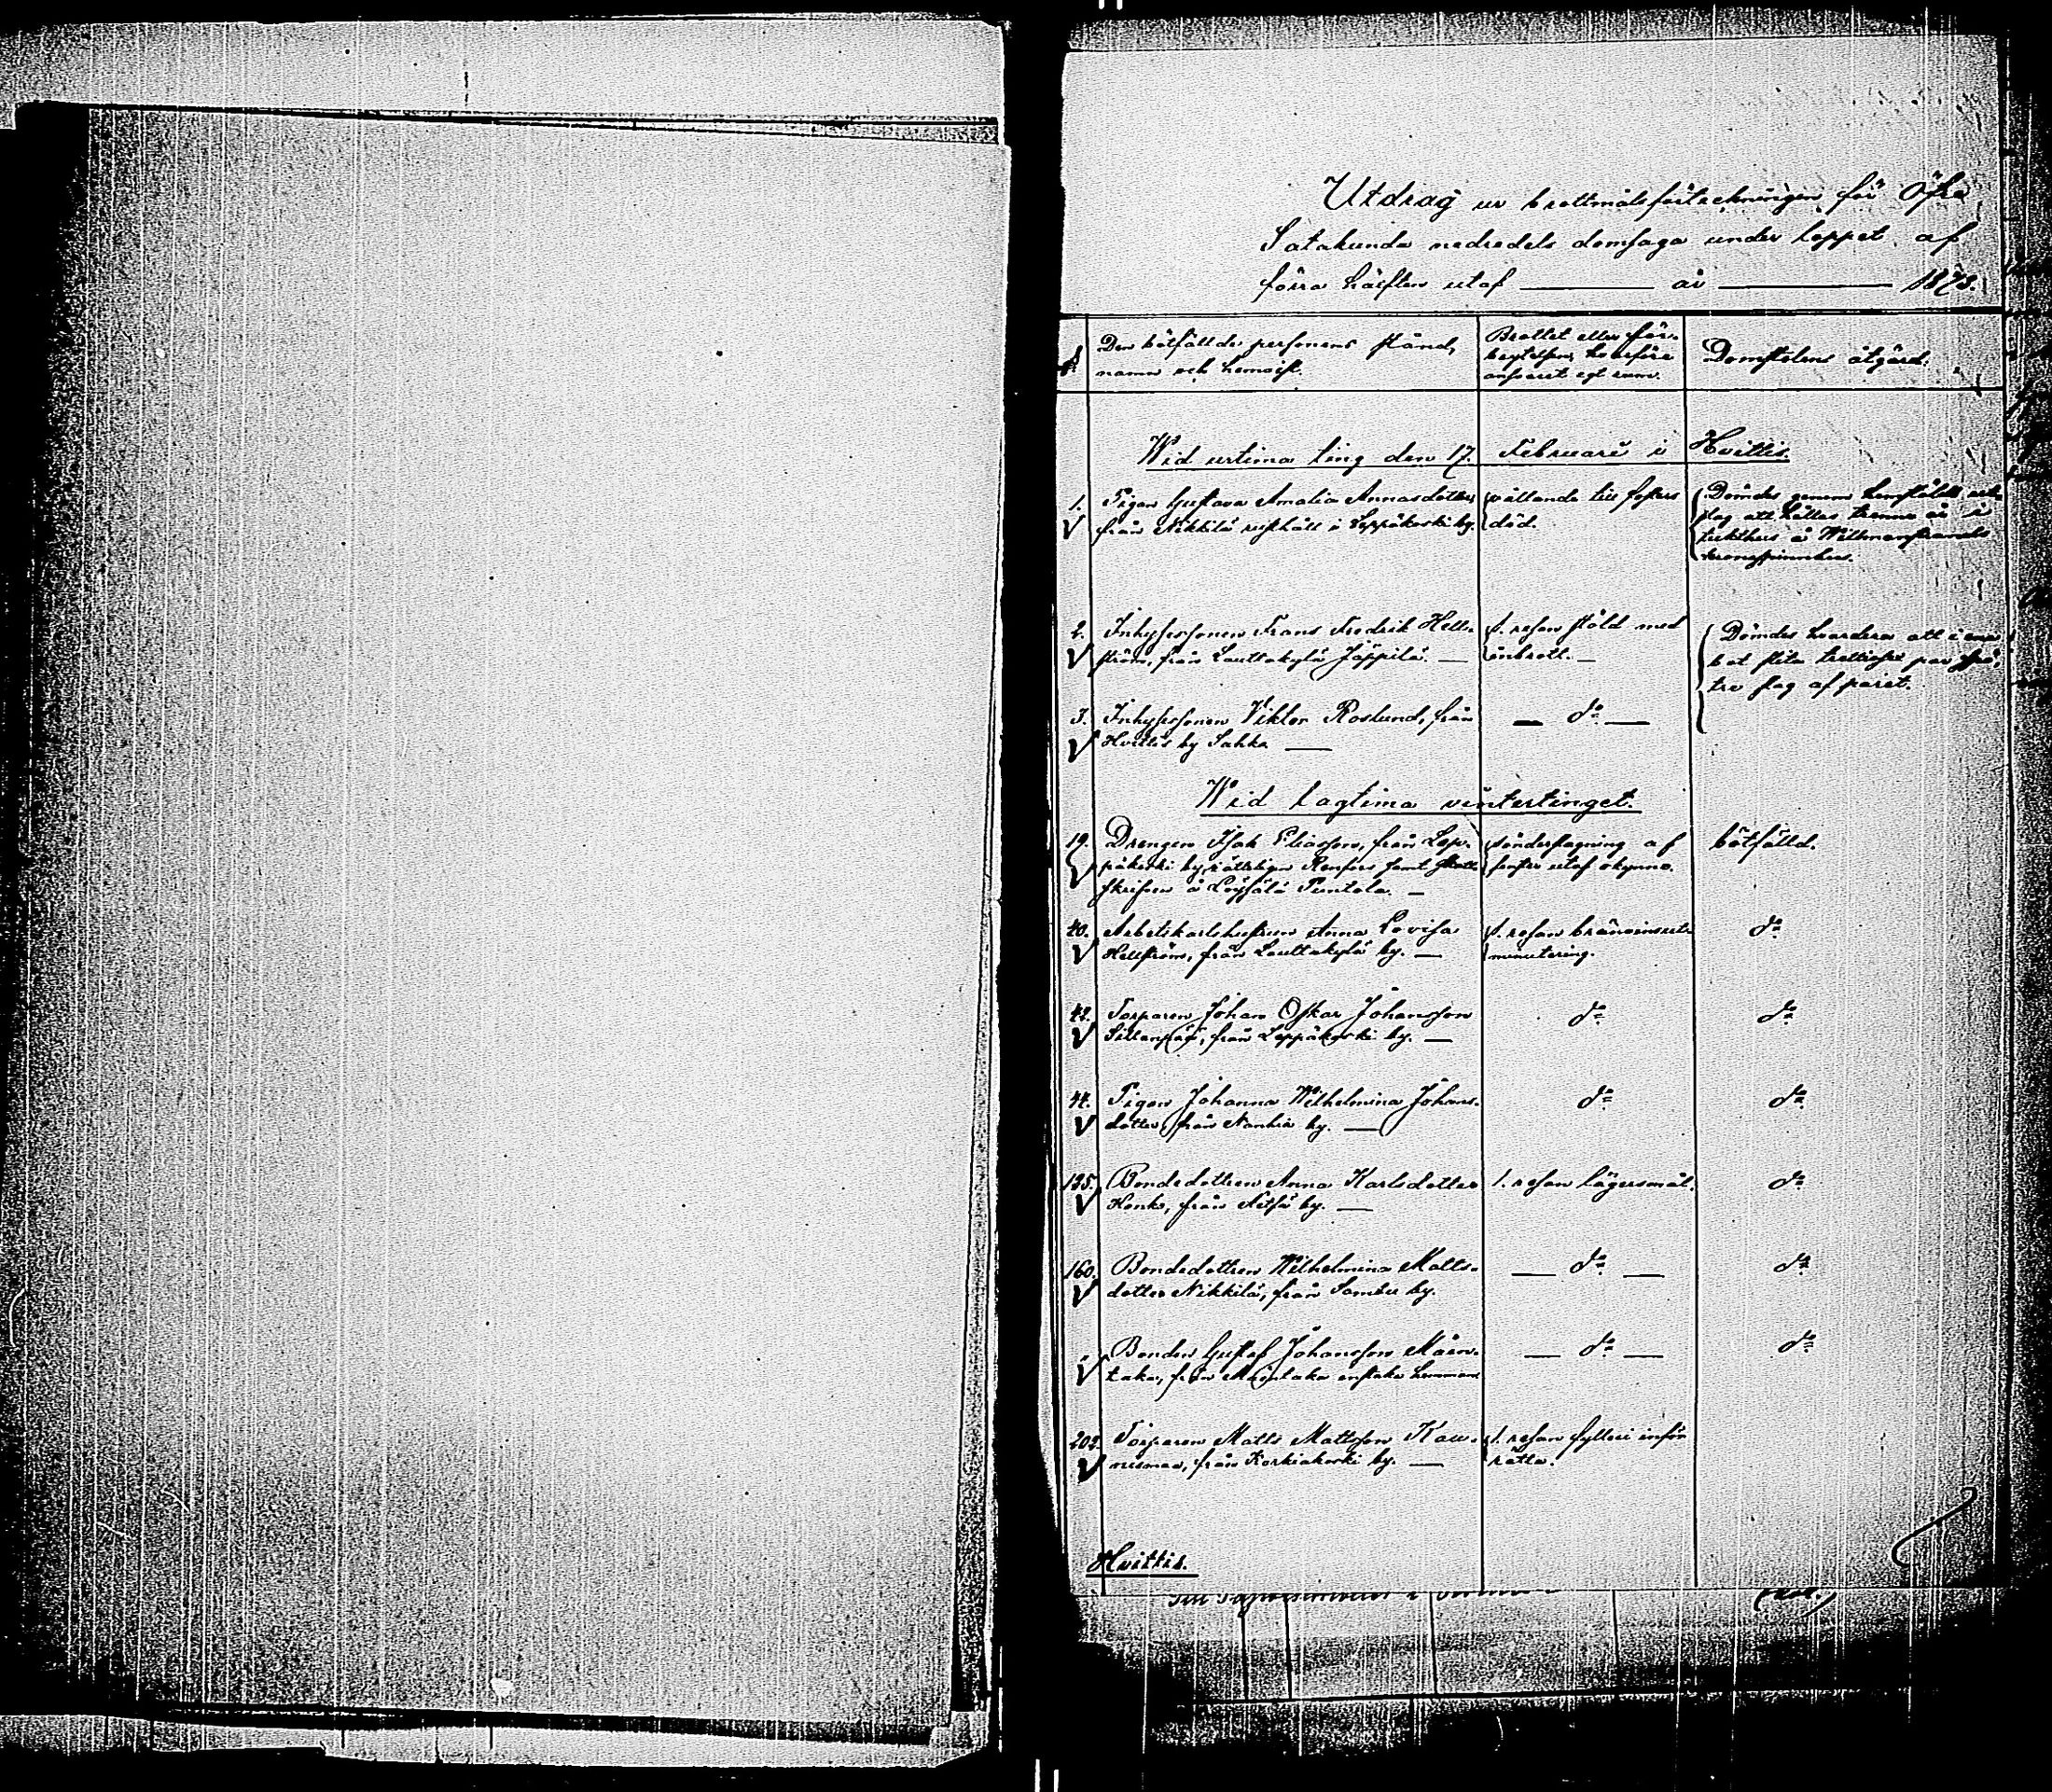 Utdrag ur brottmålsförteckningen för Öfre
Satakunda nedredels domsaga under loppet af
förra hälften utaf ——— år ——— 1878.
Den bötfällde personens stånd,
namn och hemvist.
Brottet eller för-
brytelsen, hvarföre
ansvaret egt rum.
Domstolens åtgärd.
Wid urtima ting den 17. Februari i Hvittis.
1. Pigan Gustava Amalia Annasdotter
från Nikkilä rusthåll i Leppäkoski by.
vållande till fosters
död.
Dömdes genom hemstäldt ut-
slag att hållas trenne år i
tukthus å Willmanstrands
kronospinnhus.
2. Inhysessonen Frans Fredrik Hell-
ström, från Lauttakylä Jäppilä. —
1. resan stöld med
inbrott. —
Dömdes hvardera att i
bot slita trettiosex par spö,
tre slag af paret.
3. Inhysessonen Viktor Roslund, från
Hvittis by Sahka —
— d:o —
Wid lagtima vintertinget.
19. Drengen Isak Eliasson, från Lep-
päkoski by, Renfors samt
å Loysälä Puntola. —
sönderslagning af
fenster utaf okynne.
bötfälld.
40. Arbetskarlshustrun Anna Lovisa
Hellström, från Lauttakylä by. —
1. resan bränvinsut-
minutering.
d:o
42. Torparen Johan Oskar Johansson
Sillanpää, från Leppäkoski by. —
d:o
d:o
44. Pigan Johanna Wilhelmina Johans-
dotter, från Nanhia by. —
d:o
d:o
135. Bondedottren Anna Karlsdotter
Honko, från by. —
1. resan lägersmål.
d:o
160. Bondedottren Wilhelmina Matts-
dotter Nikkilä, från Sambu by.
— d:o —
d:o
" Bonden Gustaf Johansson Maen-
taka, från Maentaka enstaka hemman
— d:o —
d:o
202. Torparen Matts Mattsson Kau-
nismaa, från Korkiakoski by. —
1. resan fylleri inför
rätta.
Hvittis.